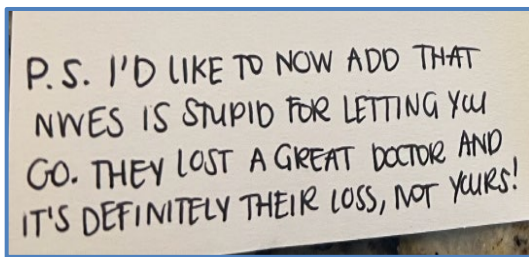 P.S. I'D LIKE TO NOW ADD THAT
NWES IS STUPID FOR LETTING YOU
GO. THEY LOST A GREAT DOCTOR AND
IT'S DEFINITELY THEIR LOSS, NOT YOURS!